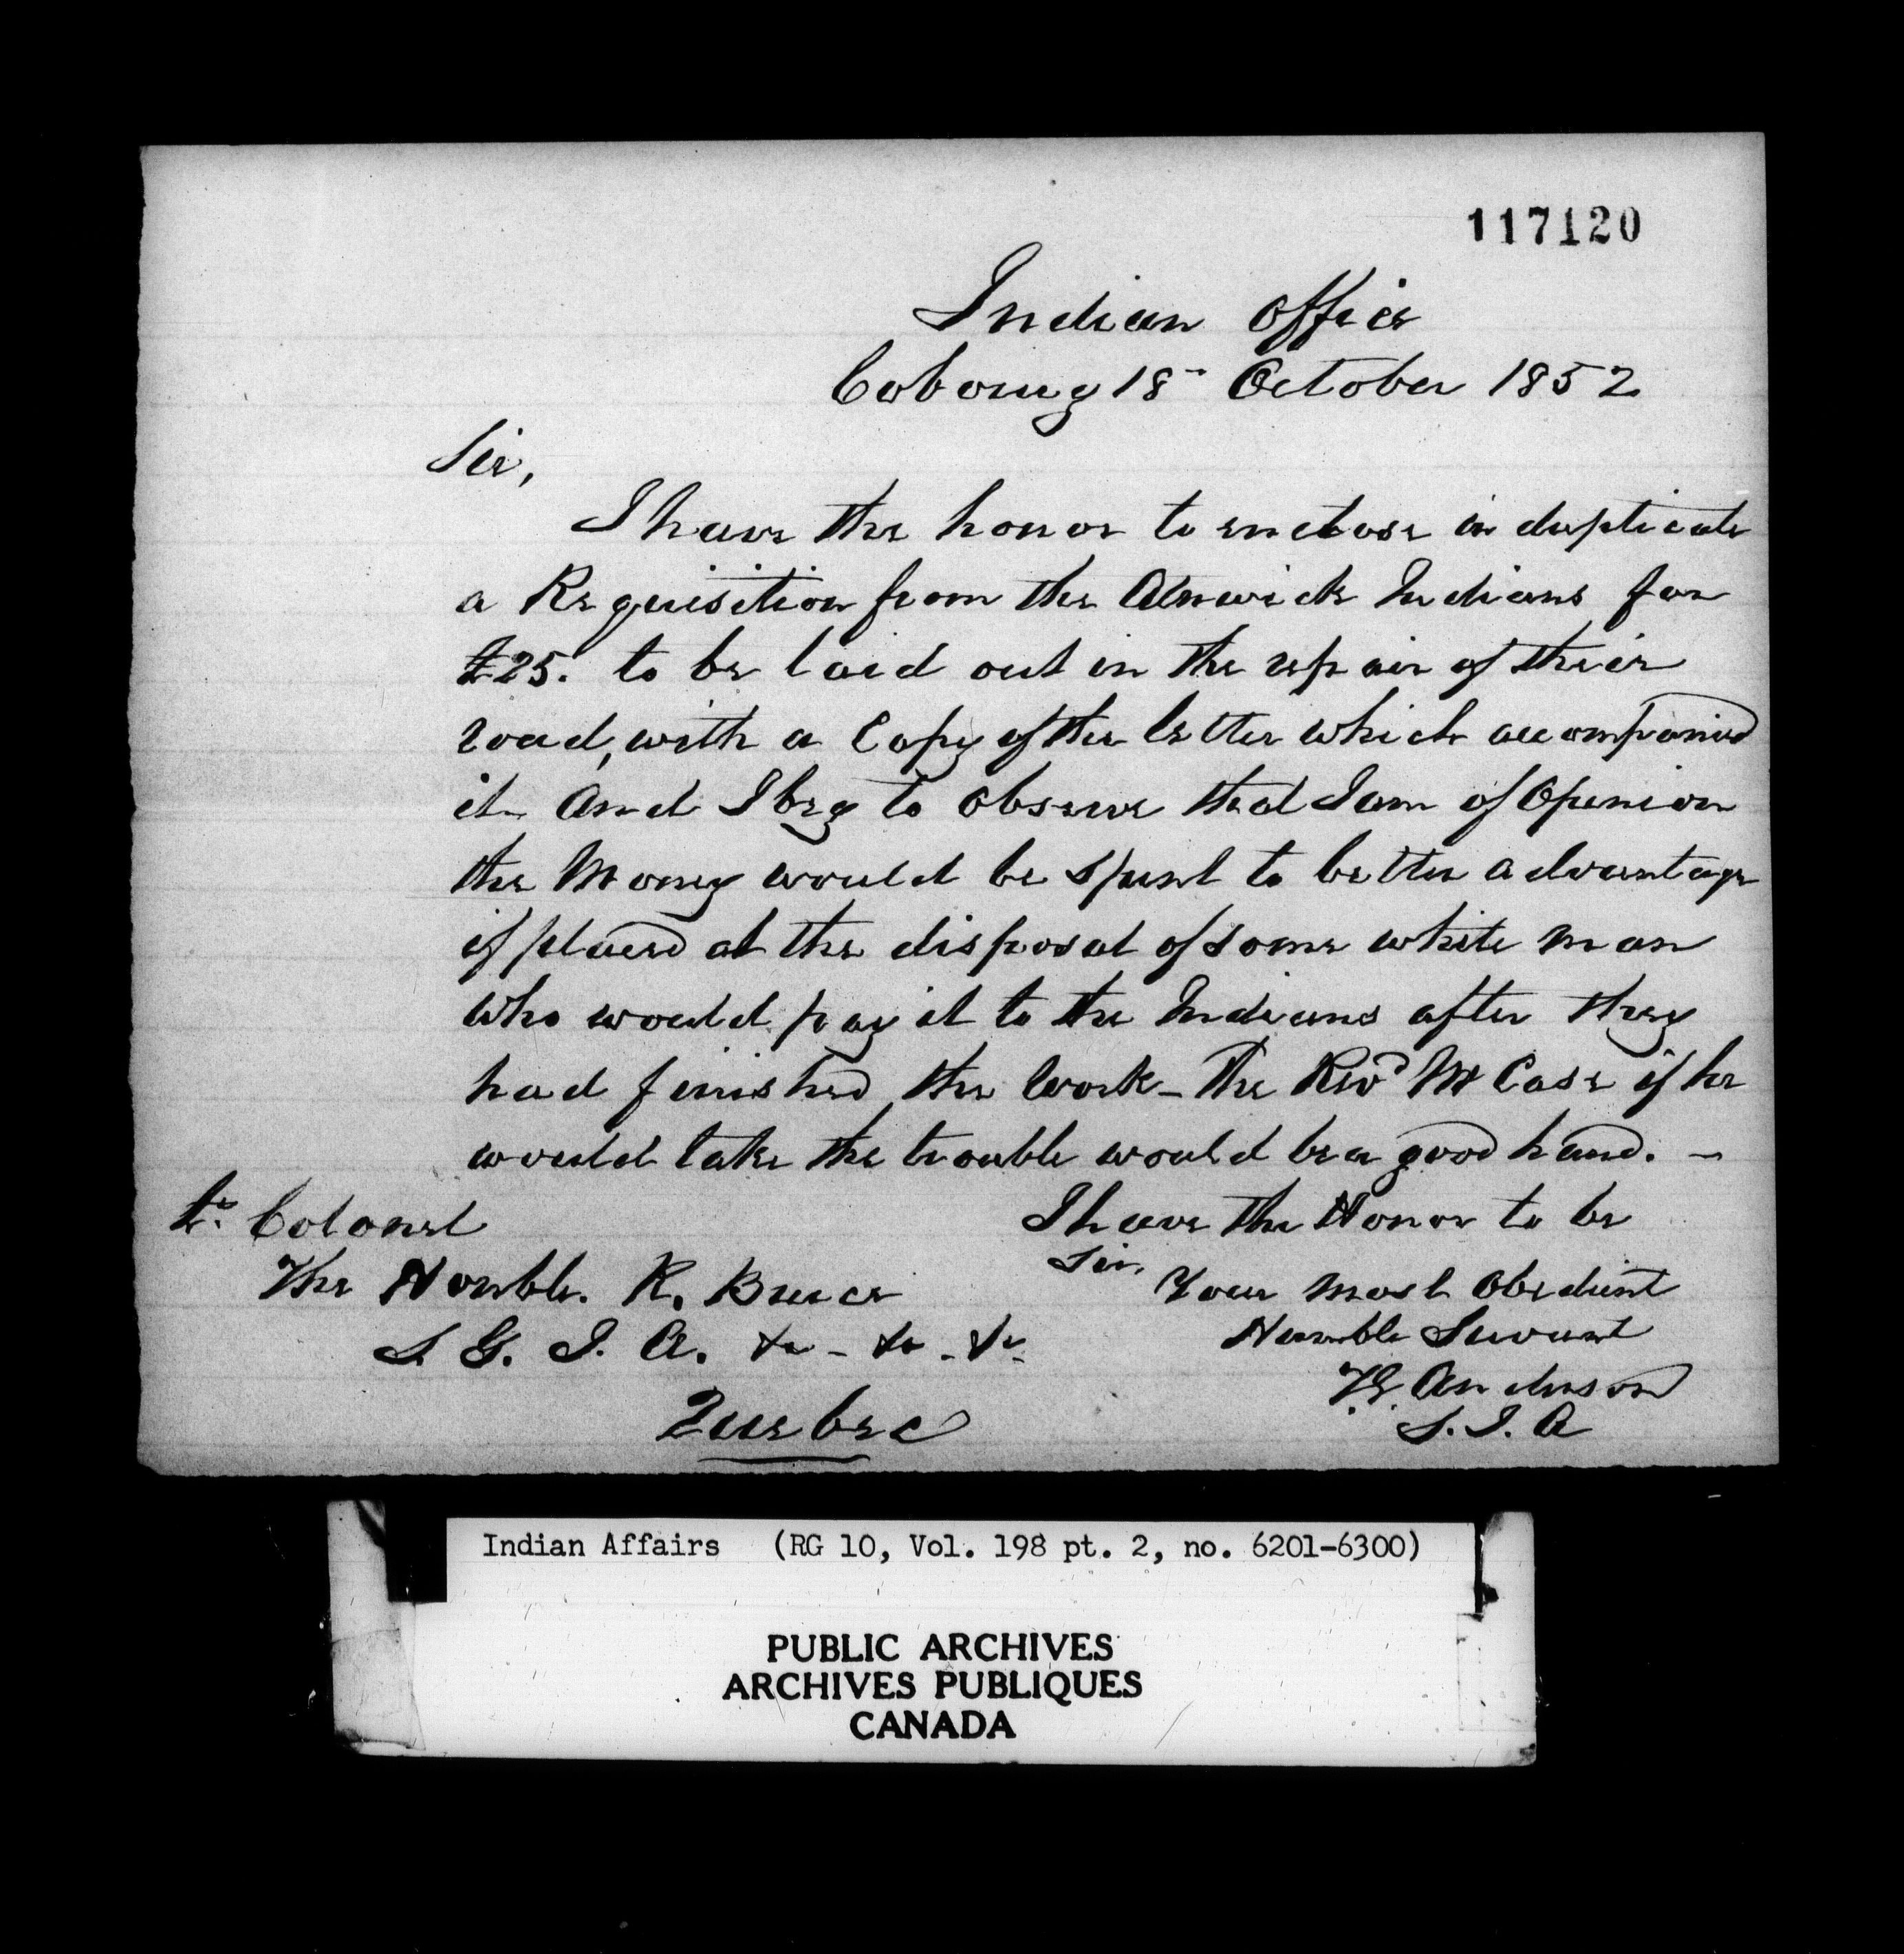 117120
Indian Office
Cobourg 18" October 1852
Sir,
I have the honor to enclose in duplicate
a Requisition from the Alnwick Indians for
£25. to be laid out in the repair of their
road, with a Copy of the letter which accompanied
it And I beg to observe that I am of Opinion
the Money would be spent to better advantage
if placed at the disposal of some white man
who would pay it to the Indians after they
had finished the work – The Revd Mr Case if he
would take the trouble would be a good hand. –
I have the Honor to be
Sir,
Your most Obedient
Humble Servant
T.G. Anderson
S.I.A
Lt. Colonel
The Honble. R. Bruce
S G. I. A. &c - &c - &c.
Quebec
Indian Affairs (RG 10, Vol. 198 pt. 2, no. 6201-6300)
PUBLIC ARCHIVES
ARCHIVES PUBLIQUES
CANADA